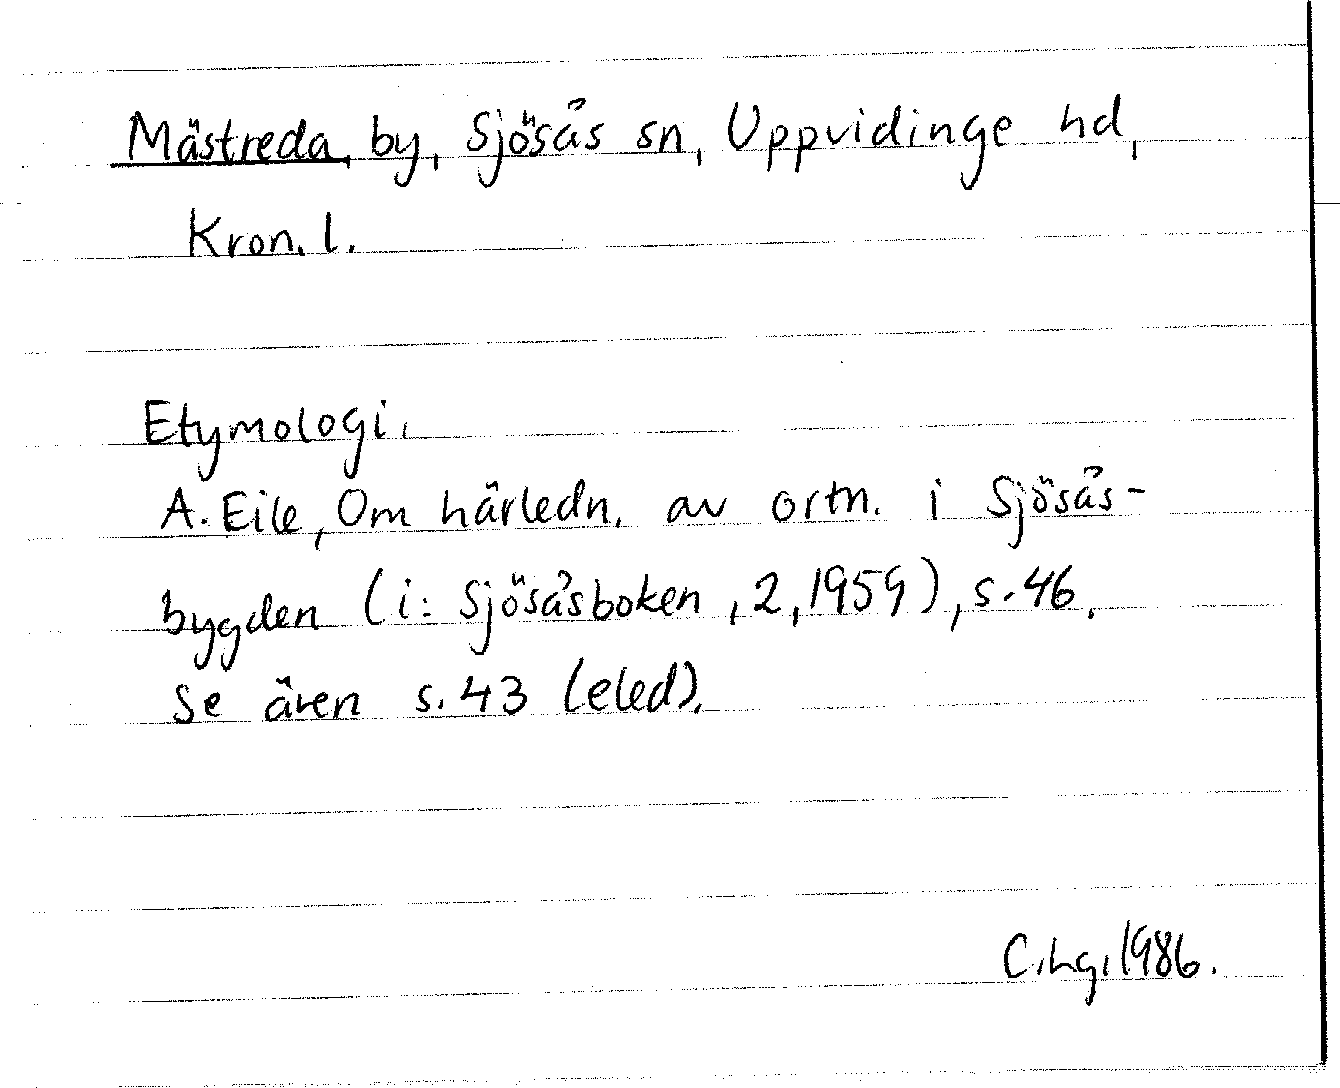 Mästreda, by, Sjösås sn, Uppvidinge hd,
Kron. l.
Etymologi.
A. Eile, Om härledn. av ortn. i Sjösås-
bygden (i: Sjösåsboken, 2, 1959), s. 46.
Se även s. 43 (eled).
C. Lg, 1986.